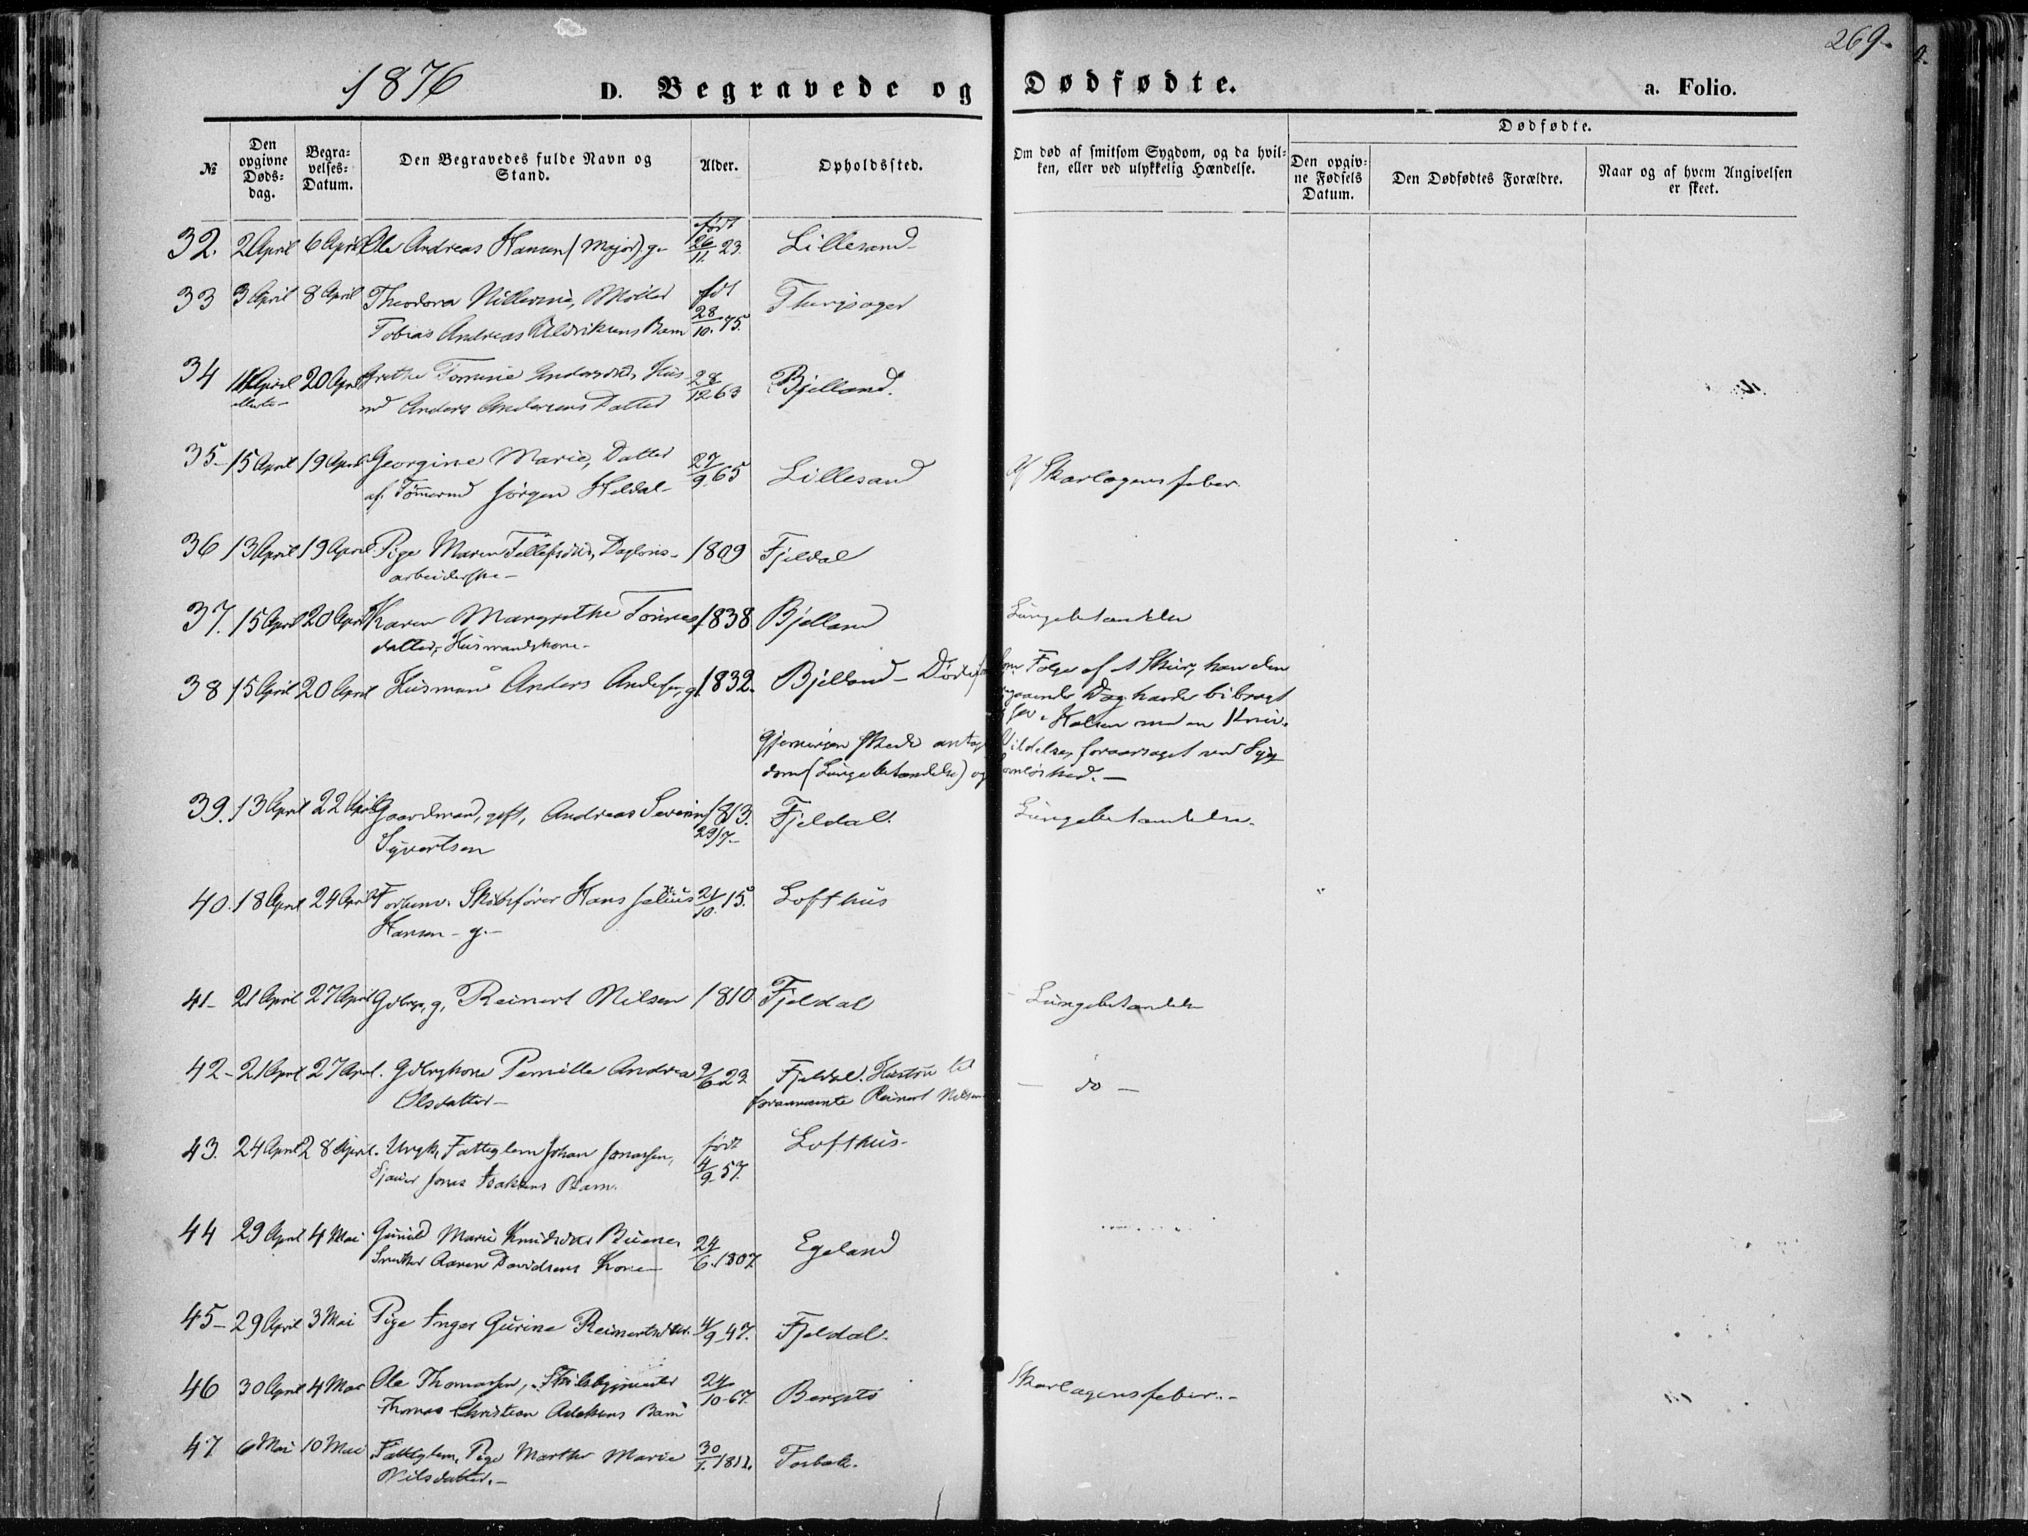 269.
1876
D. Begravede og Dødfødte.
a. Folio.
№
Den opgivne Døds-dag.
Begra-velses-Datum.
Den Begravedes fulde Navn og Stand.
Alder.
Opholdssted.
Om død af smitsom Sygdom, og da hvil-ken, eller ved ulykkelig Hændelse.
Dødfødte.
Den opgiv-ne Fødsels Datum.
Den Dødfødtes Forældre.
Naar og af hvem Angivelsen er skeet.
født
32. 2 April 6 April Ole Andreas Hansen (Major) g. 26/11. 23. Lillesand
33 3 April 8 April Theodora
Tobias Andreas Barn 28/10. 75.
34 11 April 20 April Grethe Andersdtr. Hus- 28/12 63 Bjelland.
md Anders Andersens Datter
35 15 April 19 April Georgine Marie, Datter 27/9. 65 Lillesand Af Skarlagensfeber.
af Tømmermd Jørgen Heldal
36 13 April 19 April Pige Maren Tellefsdtr, Dagløns- 1809 Fjeldal
arbeiderske
37. 15 April 20 April Karen Margrethe Tønnes- 1838 Bjelland Lungebetændelse
datter, Husmandskone
38 15 April 20 April Husmand Anders Andersen, g. 1832. Bjelland - Døde som Følge af et Skur, han den
Dag havde bibragt
Halsen med en Kniv.
Gjerningen skede foraarsaget ved Syg-
dom (Lungebetændelse) og Søvnløshed.
39. 13 April 22 April Gaardmand, gift, Andreas Severin 1813. Fjeldal. Lungebetændelse.
Syvertsen 29/7
40. 18 April 24 April Forhenv. Skibsfører Hans Julius 21/10. 15. Lofthus
Hansen - g.
41 21 April 27 April Gdbrgr, g, Reinert Nilsen 1810 Fjeldal Lungebetændelse
42 21 April 27 April. Gdbrgkone Pernille Andrea 9/6 23 Fjeldal. Hustru til do
Olsdatter fornævnte Reinert Nilsen
43. 24 April 28 April. Ungk, Fattiglem Johan Jonassen, født Lofthus
Jonas Isaksens Barn. 4/9 57.
44 29 April 4 Mai Gunild Marie Knudsdtr Buene, 24/6. 1807 Egeland
Aanen Davidsens Kone
45 29 April 3 Mai Pige Inger Gurine Reinertsdtr. 4/9 47. Fjeldal.
46 30 April 4 Mai Ole Thomassen, Skibsbygmester 24/10 67. Bergstø Skarlagensfeber.
Thomas Christian Barn
47 6 Mai 10 Mai Fattiglem, Pige Marthe Marie 30/1. 1811.
Nilsdatter.